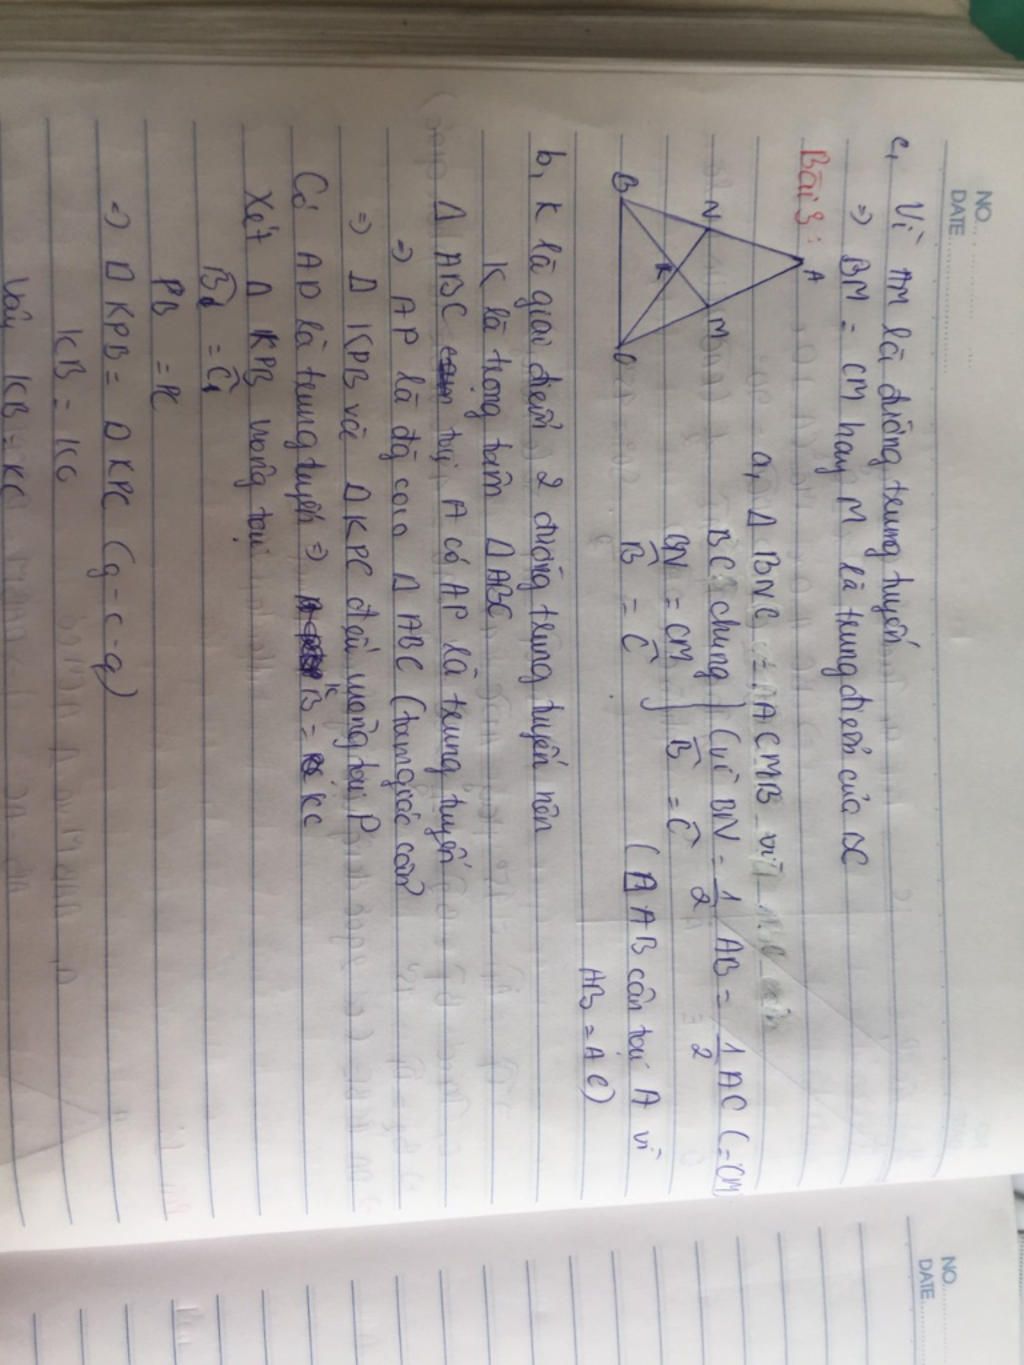 NO.
DATE
c, Vì AM là đường trung tuyến
=> BM = CM hay M là trung điểm của BC
Bài 3:
A
N
M
K
B
C
a, Δ BNC = Δ CMB vì
BC chung } (vì BN = 1/2 AB = 1/2 AC (= CM)
BN = CM } B̂ = Ĉ
B̂ = Ĉ (Δ AB cân tại A vì
AB = AC)
b, K là giao điểm 2 đường trung tuyến nên
K là trọng tâm Δ ABC
Δ ABC tại A có AP là trung tuyến
=> AP là đg cao Δ ABC (tam giác cân)
=> Δ KPB và Δ KPC đều vuông tại P
Có AP là trung tuyến => KB = KC
Xét Δ KPB vuông tại
B̂1 = Ĉ1
PB = PC
=> Δ KPB = Δ KPC (g-c-g)
KB = KC
Vậy KB = KC
NO.
DATE